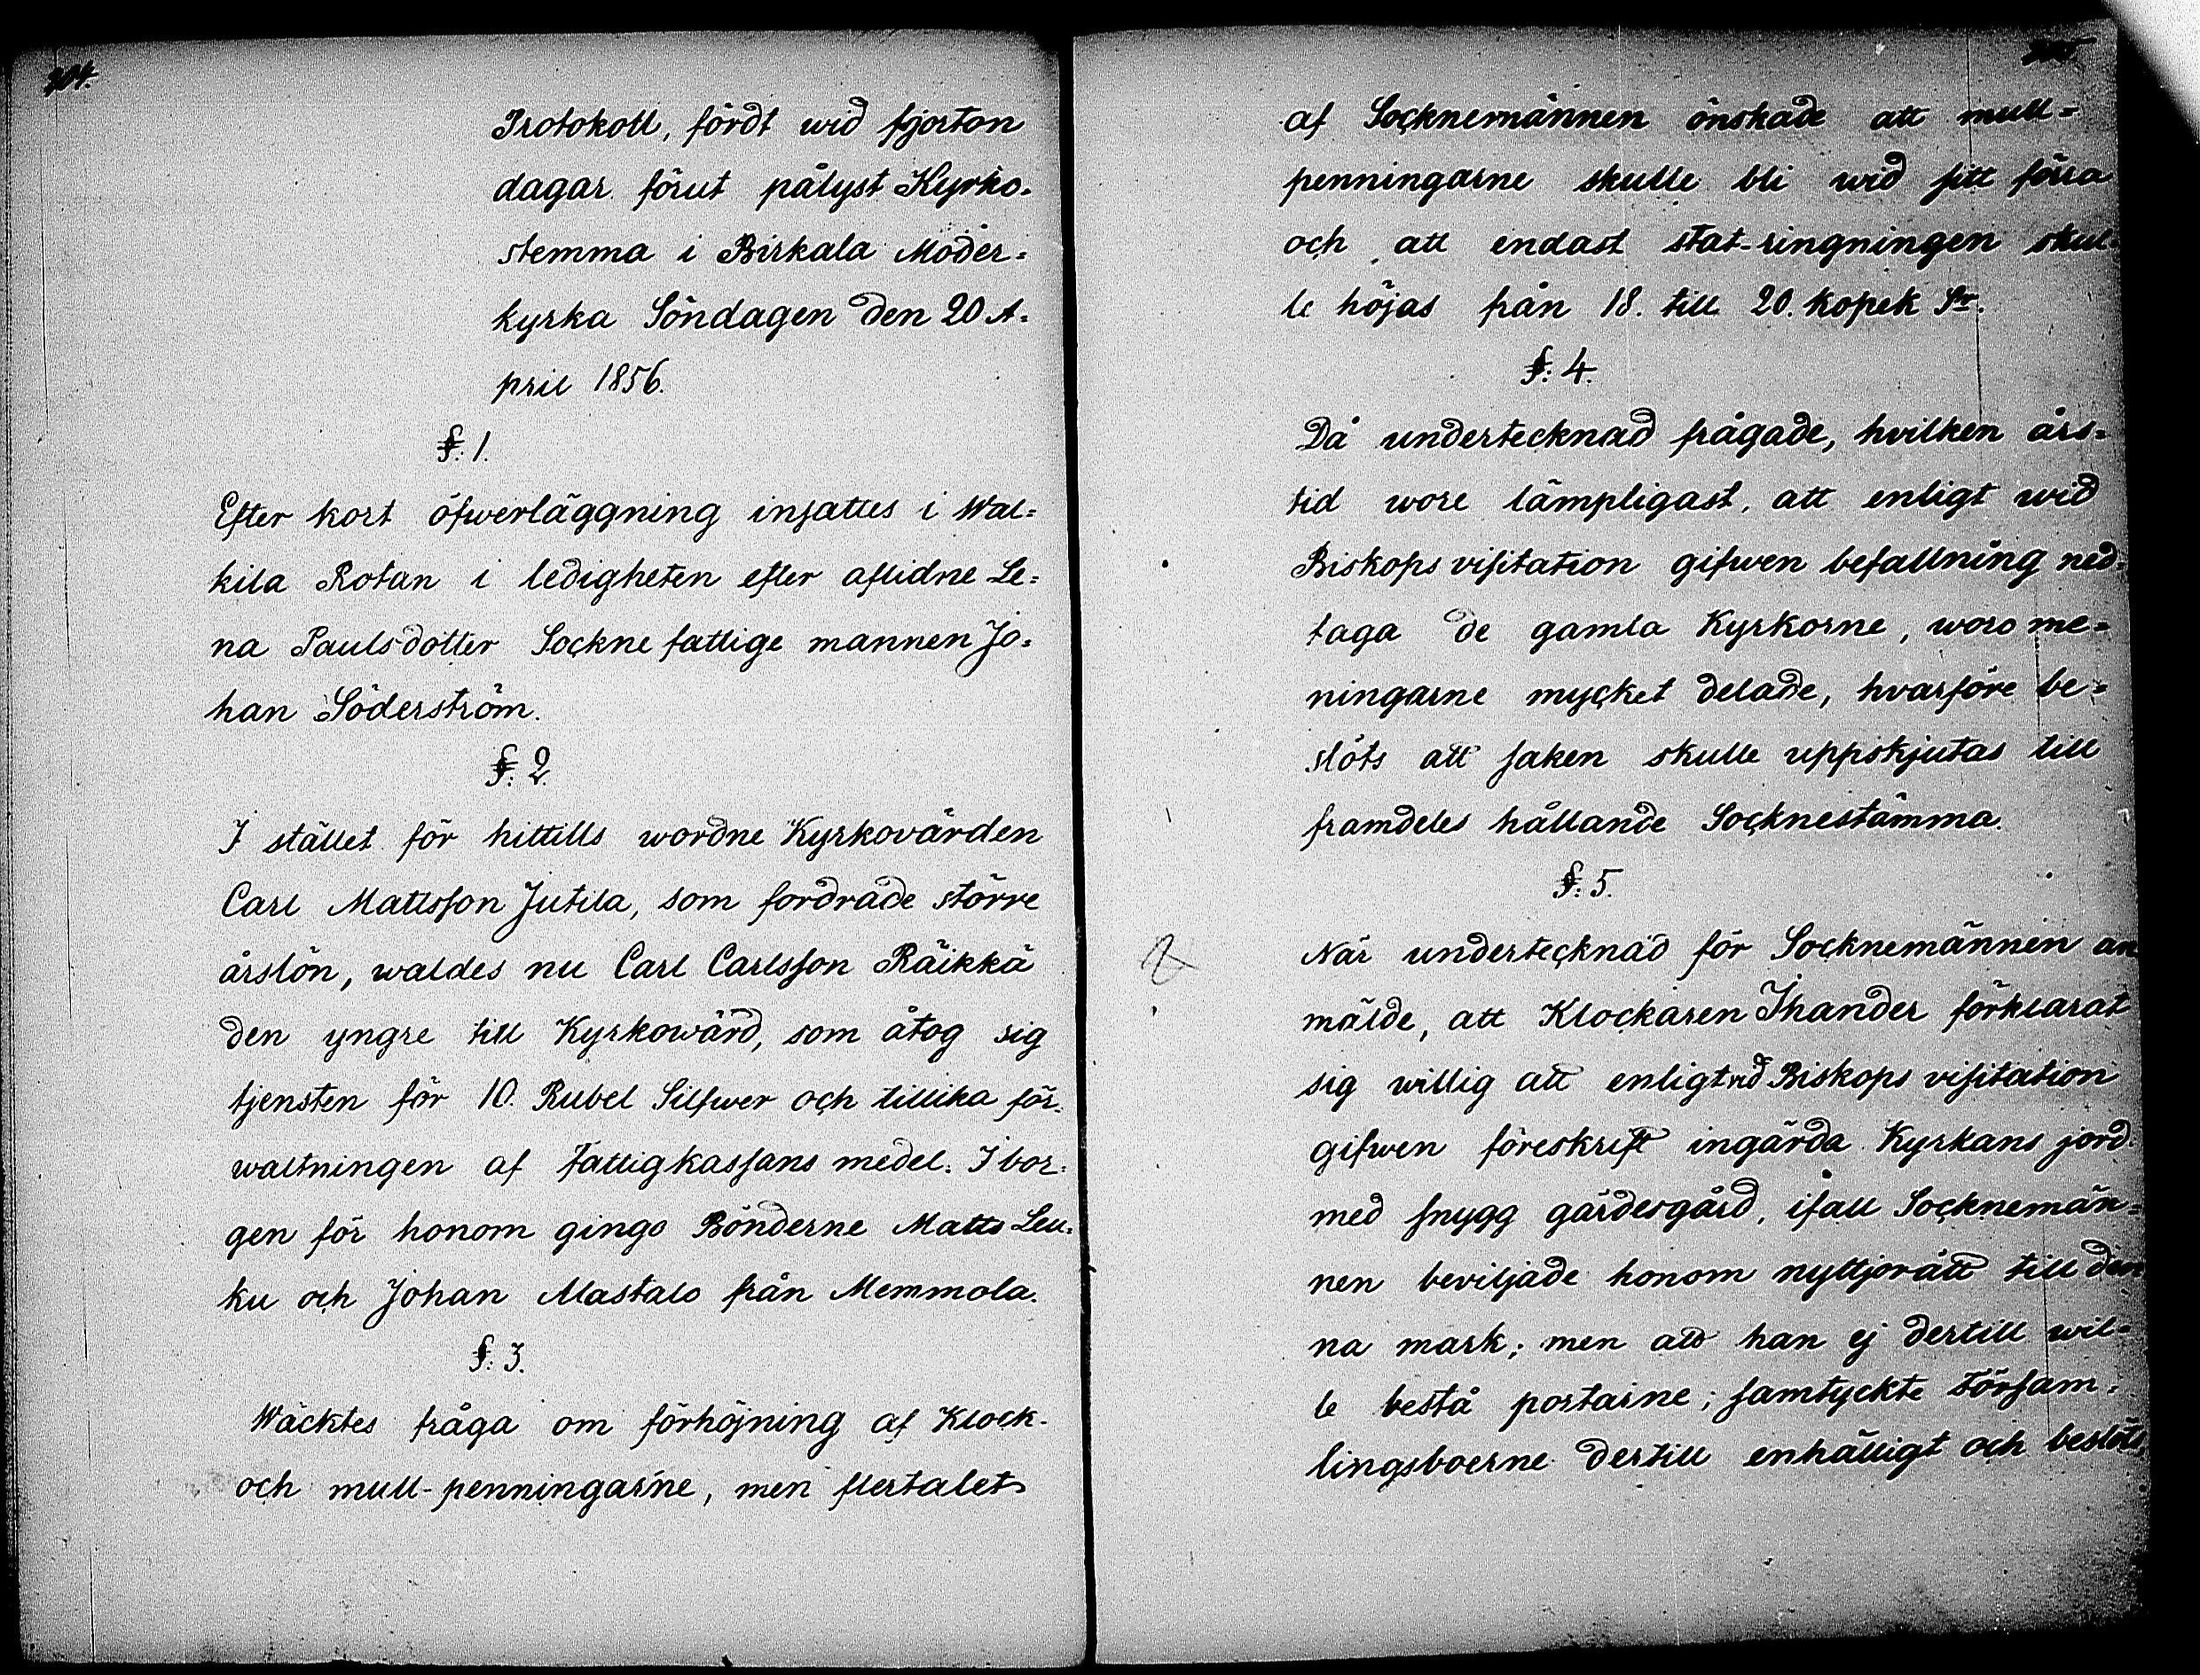 704.
Protokoll, fördt wid fjorton
dagar förut pålyst Kyrko-
stemma i Birkala Moder-
kyrka Söndagen den 20 A-
pril 1856.
§: 1.
Efter kort öfwerläggning insattes i Wal-
kila Rotan i ledigheten efter aflidne Le-
na Paulsdotter Sockne fattige mannen Jo-
han Söderström.
§: 2.
I stället för hittills wordne Kyrkovärden
Carl Mattsson Jutila, som fordrade större
årslön, waldes nu Carl Carlsson Räikkä
den yngre till Kyrkowärd, som åtog sig
tjensten för 10. Rubel Silfwer och tillika för-
waltningen af Fattigkassans medel. I bor-
gen för honom gingo Bönderne Matts Leu-
ku och Johan Mastalo från Memmola.
§: 3.
Wäcktes fråga om förhöjning af Klock-
och mull-penningarne, men flertalet
705.
af Socknemännen önskade att mull-
penningarne skulle bli wid sitt förra
och att endast stat-ringningen skul-
le höjas från 18. till 20. kopek Sr.
§: 4.
Då undertecknad frågade, hvilken års-
tid wore lämpligast, att enligt wid
Biskops visitation gifwen befallning ned-
taga de gamla Kyrkorne, woro me-
ningarne mycket delade, hvarföre be-
slöts att saken skulle uppskjutas till
framdeles hållande Socknestämma.
§: 5.
När undertecknad för Socknemännen an
mälde, att Klockaren Ihander förklarat
sig willig att enligt vid Biskops visitation
gifwen föreskrift ingärda Kyrkans jord
med snygg gärdesgård, ifall Socknemän-
nen beviljade honom nyttjorätt till den
na mark; men att han ej dertill wil-
le bestå portarne; samtyckte Försam-
lingsboerne dertill enhälligt och beslöts